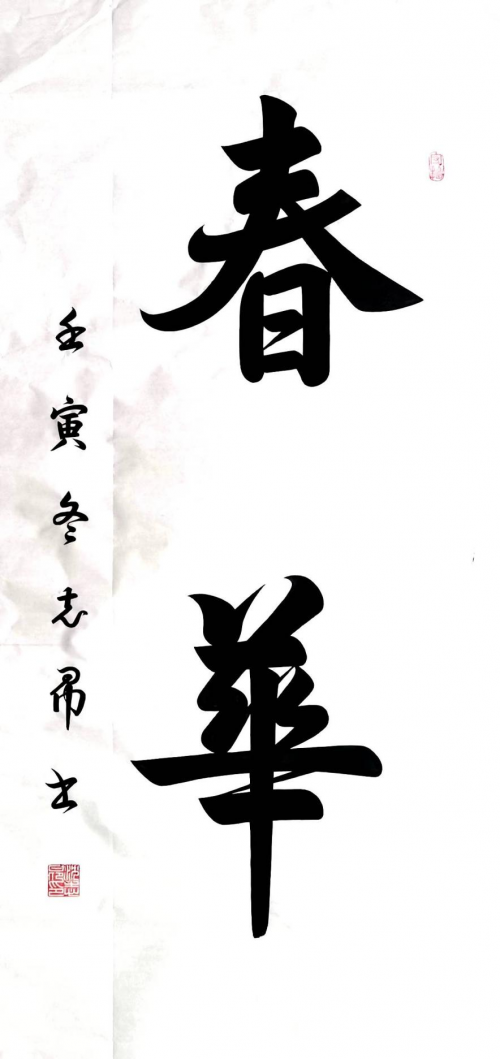 春華
壬寅冬志昂書